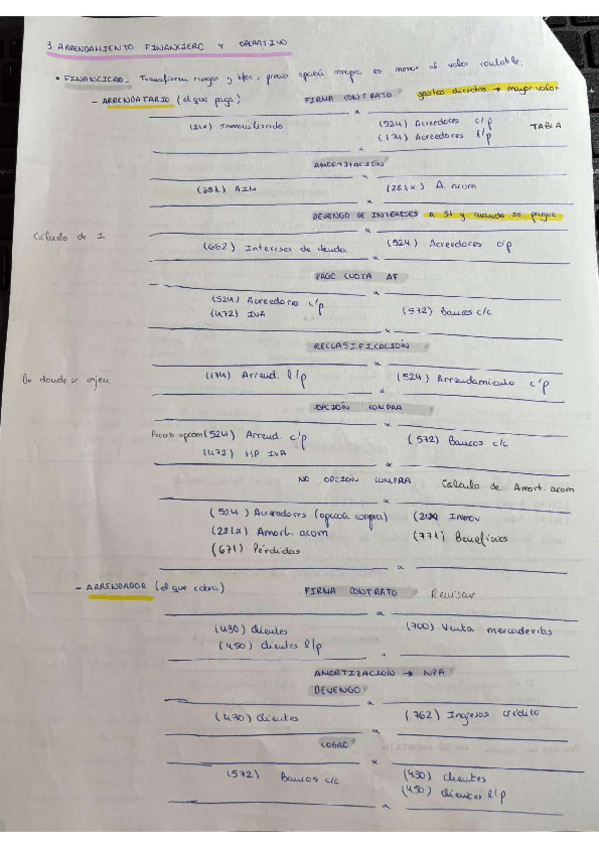 3 ARRENDAMIENTO FINANCIERO Y OPERATIVO
• FINANCIERO. Transfieren riesgos y bfos, precio opción compra es menor al valor contable.
- ARRENDATARIO (el que paga) FIRMA CONTRATO gastos directos → mayor valor
(21x) Inmovilizado (524) Acreedores c/p TABLA
(174) Acreedores l/p
AMORTIZACIÓN
(681) AIM (281x) A. acom
DEVENGO DE INTERESES a 31 y cuando se pague
Cálculo de I
(662) Intereses de deuda (524) Acreedores c/p
PAGO CUOTA AF
(524) Acreedores c/p (572) Bancos c/c
(472) IVA
RECLASIFICACIÓN
De donde se cojen (174) Arrend. l/p (524) Arrendamiento c/p
OPCIÓN COMPRA
Precio opcom (524) Arrend. c/p (572) Bancos c/c
(472) HP IVA
NO OPCIÓN COMPRA Calculo de Amort. acom
(524) Acreedores (opción compra) (21x) Inmov
(281x) Amort. acom (771) Beneficios
(671) Pérdidas
- ARRENDADOR (el que cobra) FIRMA CONTRATO Revisar
(430) Clientes (700) Venta mercaderías
(450) clientes l/p
AMORTIZACION → NPA
DEVENGO
(430) Clientes (762) Ingresos crédito
COBRO
(572) Bancos c/c (430) clientes
(450) clientes l/p